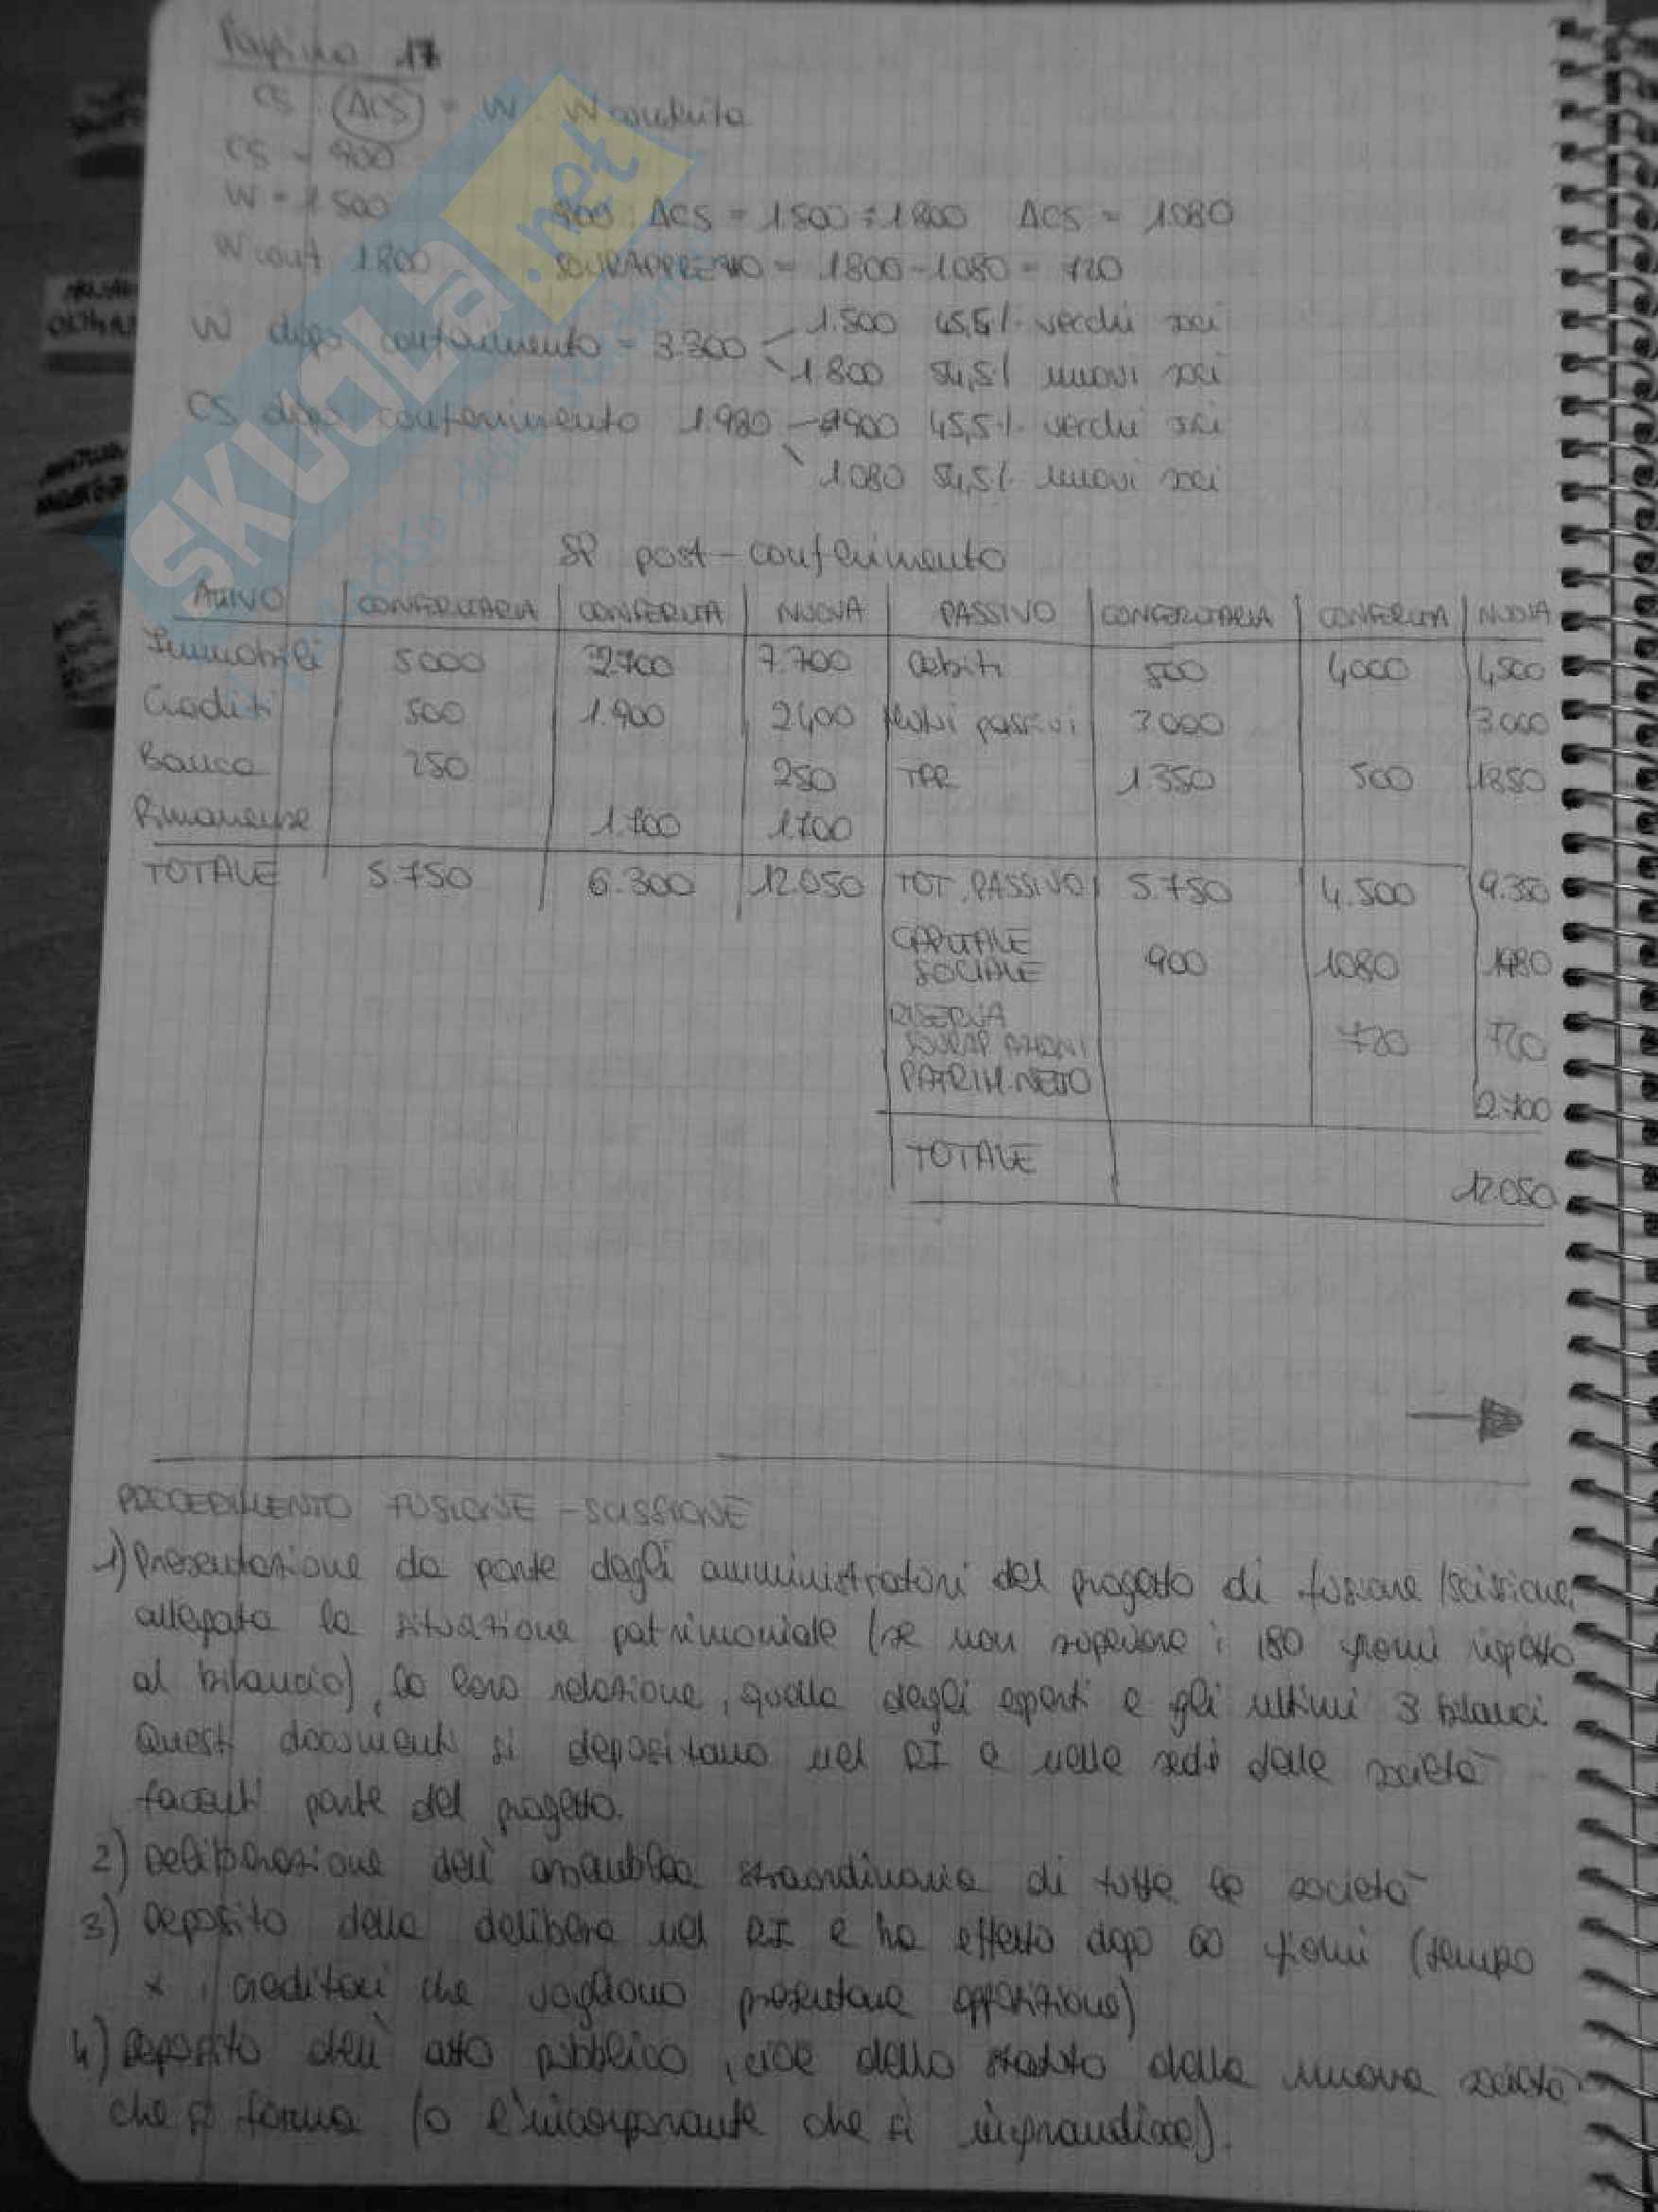 Pagina 17
CS : ΔCS = W : W conferita
CS = 900
W = 1500
900 : ΔCS = 1.500 : 1800 ΔCS = 1080
W conf 1800
SOVRAPPREZZO = 1800 - 1080 = 720
W dopo conferimento = 3.300
1.500 45,5% vecchi soci
1.800 54,5% nuovi soci
CS dopo conferimento 1.980
900 45,5% vecchi soci
1.080 54,5% nuovi soci
SP post-conferimento
ATTIVO CONFERITARIA CONFERITA NUOVA PASSIVO CONFERITARIA CONFERITA NUOVA
Immobili 5000 2700 7.700 Debiti 500 4000 4500
Crediti 500 1.900 2400 Mutui passivi 3000 3.000
Banca 250 250 TFR 1350 500 1850
Rimanenze 1.700 1.700
TOTALE 5.750 6.300 12.050 TOT. PASSIVO 5.750 4.500 9.350
CAPITALE
SOCIALE 900 1080 1980
RISERVA
SOVRAP. AZIONI 720 720
PATRIM. NETTO
2.700
TOTALE
12.050
PROCEDIMENTO FUSIONE - SCISSIONE
1) Presentazione da parte degli amministratori del progetto di fusione/scissione,
allegata la situazione patrimoniale (se non superiore i 180 giorni rispetto
al bilancio), la loro relazione, quella degli esperti e gli ultimi 3 bilanci
Questi documenti si depositano nel RI e nelle sedi delle società
facenti parte del progetto.
2) Deliberazione dell'assemblea straordinaria di tutte le società
3) Deposito della delibera nel RI e ha effetto dopo 60 giorni (tempo
x i creditori che vogliono presentare opposizione)
4) Deposito dell'atto pubblico, cioè dello statuto della nuova società
che si forma (o l'incorporante che si ingrandisce).
SKUOLA.net